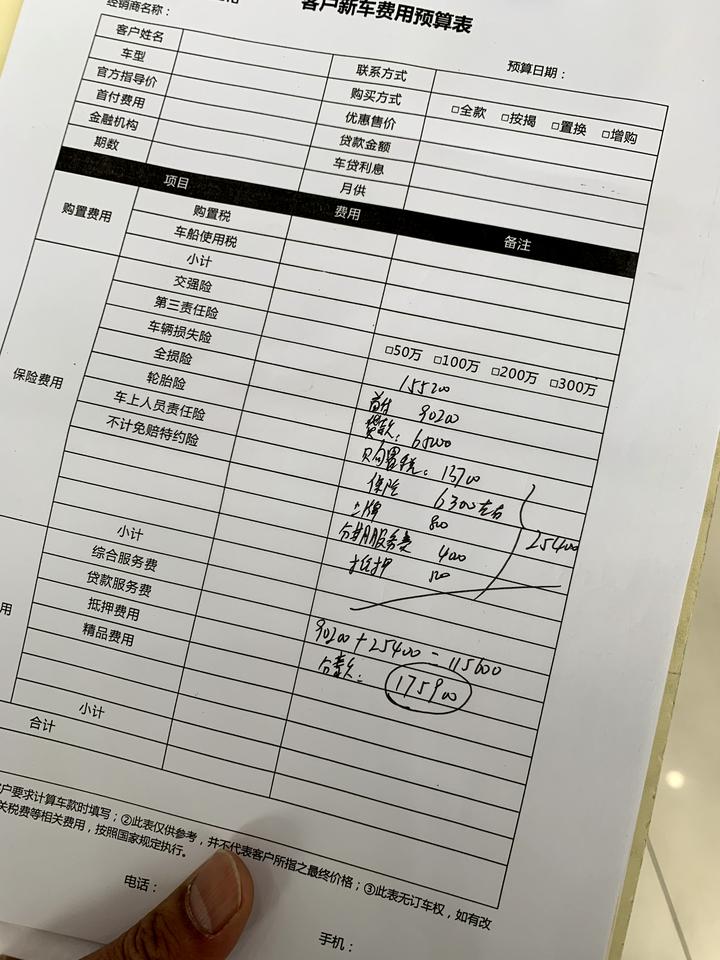 客户新车费用预算表
经销商名称：
预算日期：
客户姓名 联系方式
车型 购买方式 □全款 □按揭 □置换 □增购
官方指导价 优惠售价
首付费用 贷款金额
金融机构 车贷利息
期数 月供
项目 费用 备注
购置费用 购置税
车船使用税
小计
保险费用 交强险
第三责任险 □50万 □100万 □200万 □300万
车辆损失险
全损险
轮胎险
车上人员责任险
不计免赔特约险
小计
用 综合服务费
贷款服务费
抵押费用
精品费用
小计
合计
155200
首付 90200
贷款：65000
购置税：13700
保险 6300左右
上牌
分期服务费 400
抵押
25400
90200+25400=115600
175900
户要求计算车款时填写；②此表仅供参考，并不代表客户所指之最终价格；③此表无订车权，如有改
关税费等相关费用，按照国家规定执行。
电话：
手机：